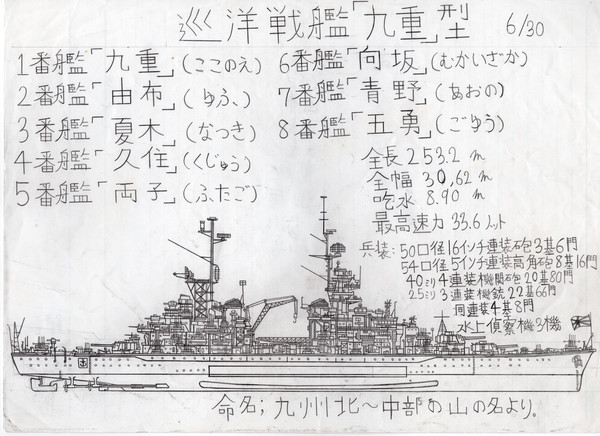 巡洋戦艦「九重」型 6/30
1番艦「九重」(ここのえ)
2番艦「由布」(ゆふ、)
3番艦「夏木」(なつき)
4番艦「久住」(くじゅう)
5番艦「両子」(ふたご)
6番艦「向坂」(むかいざか)
7番艦「青野」(あおの)
8番艦「五勇」(ごゆう)
全長 253.2 m
全幅 30,62 m
吃水 8.90 m
最高速力 33.6ノット
兵装:50口径16インチ連装砲3基6門
54口径5インチ連装高角砲8基16門
40ミリ4連装機関砲20基80門
25ミリ3連装機銃22基66門
同連装4基8門
水上偵察機3機
命名;九州北~中部の山の名より。